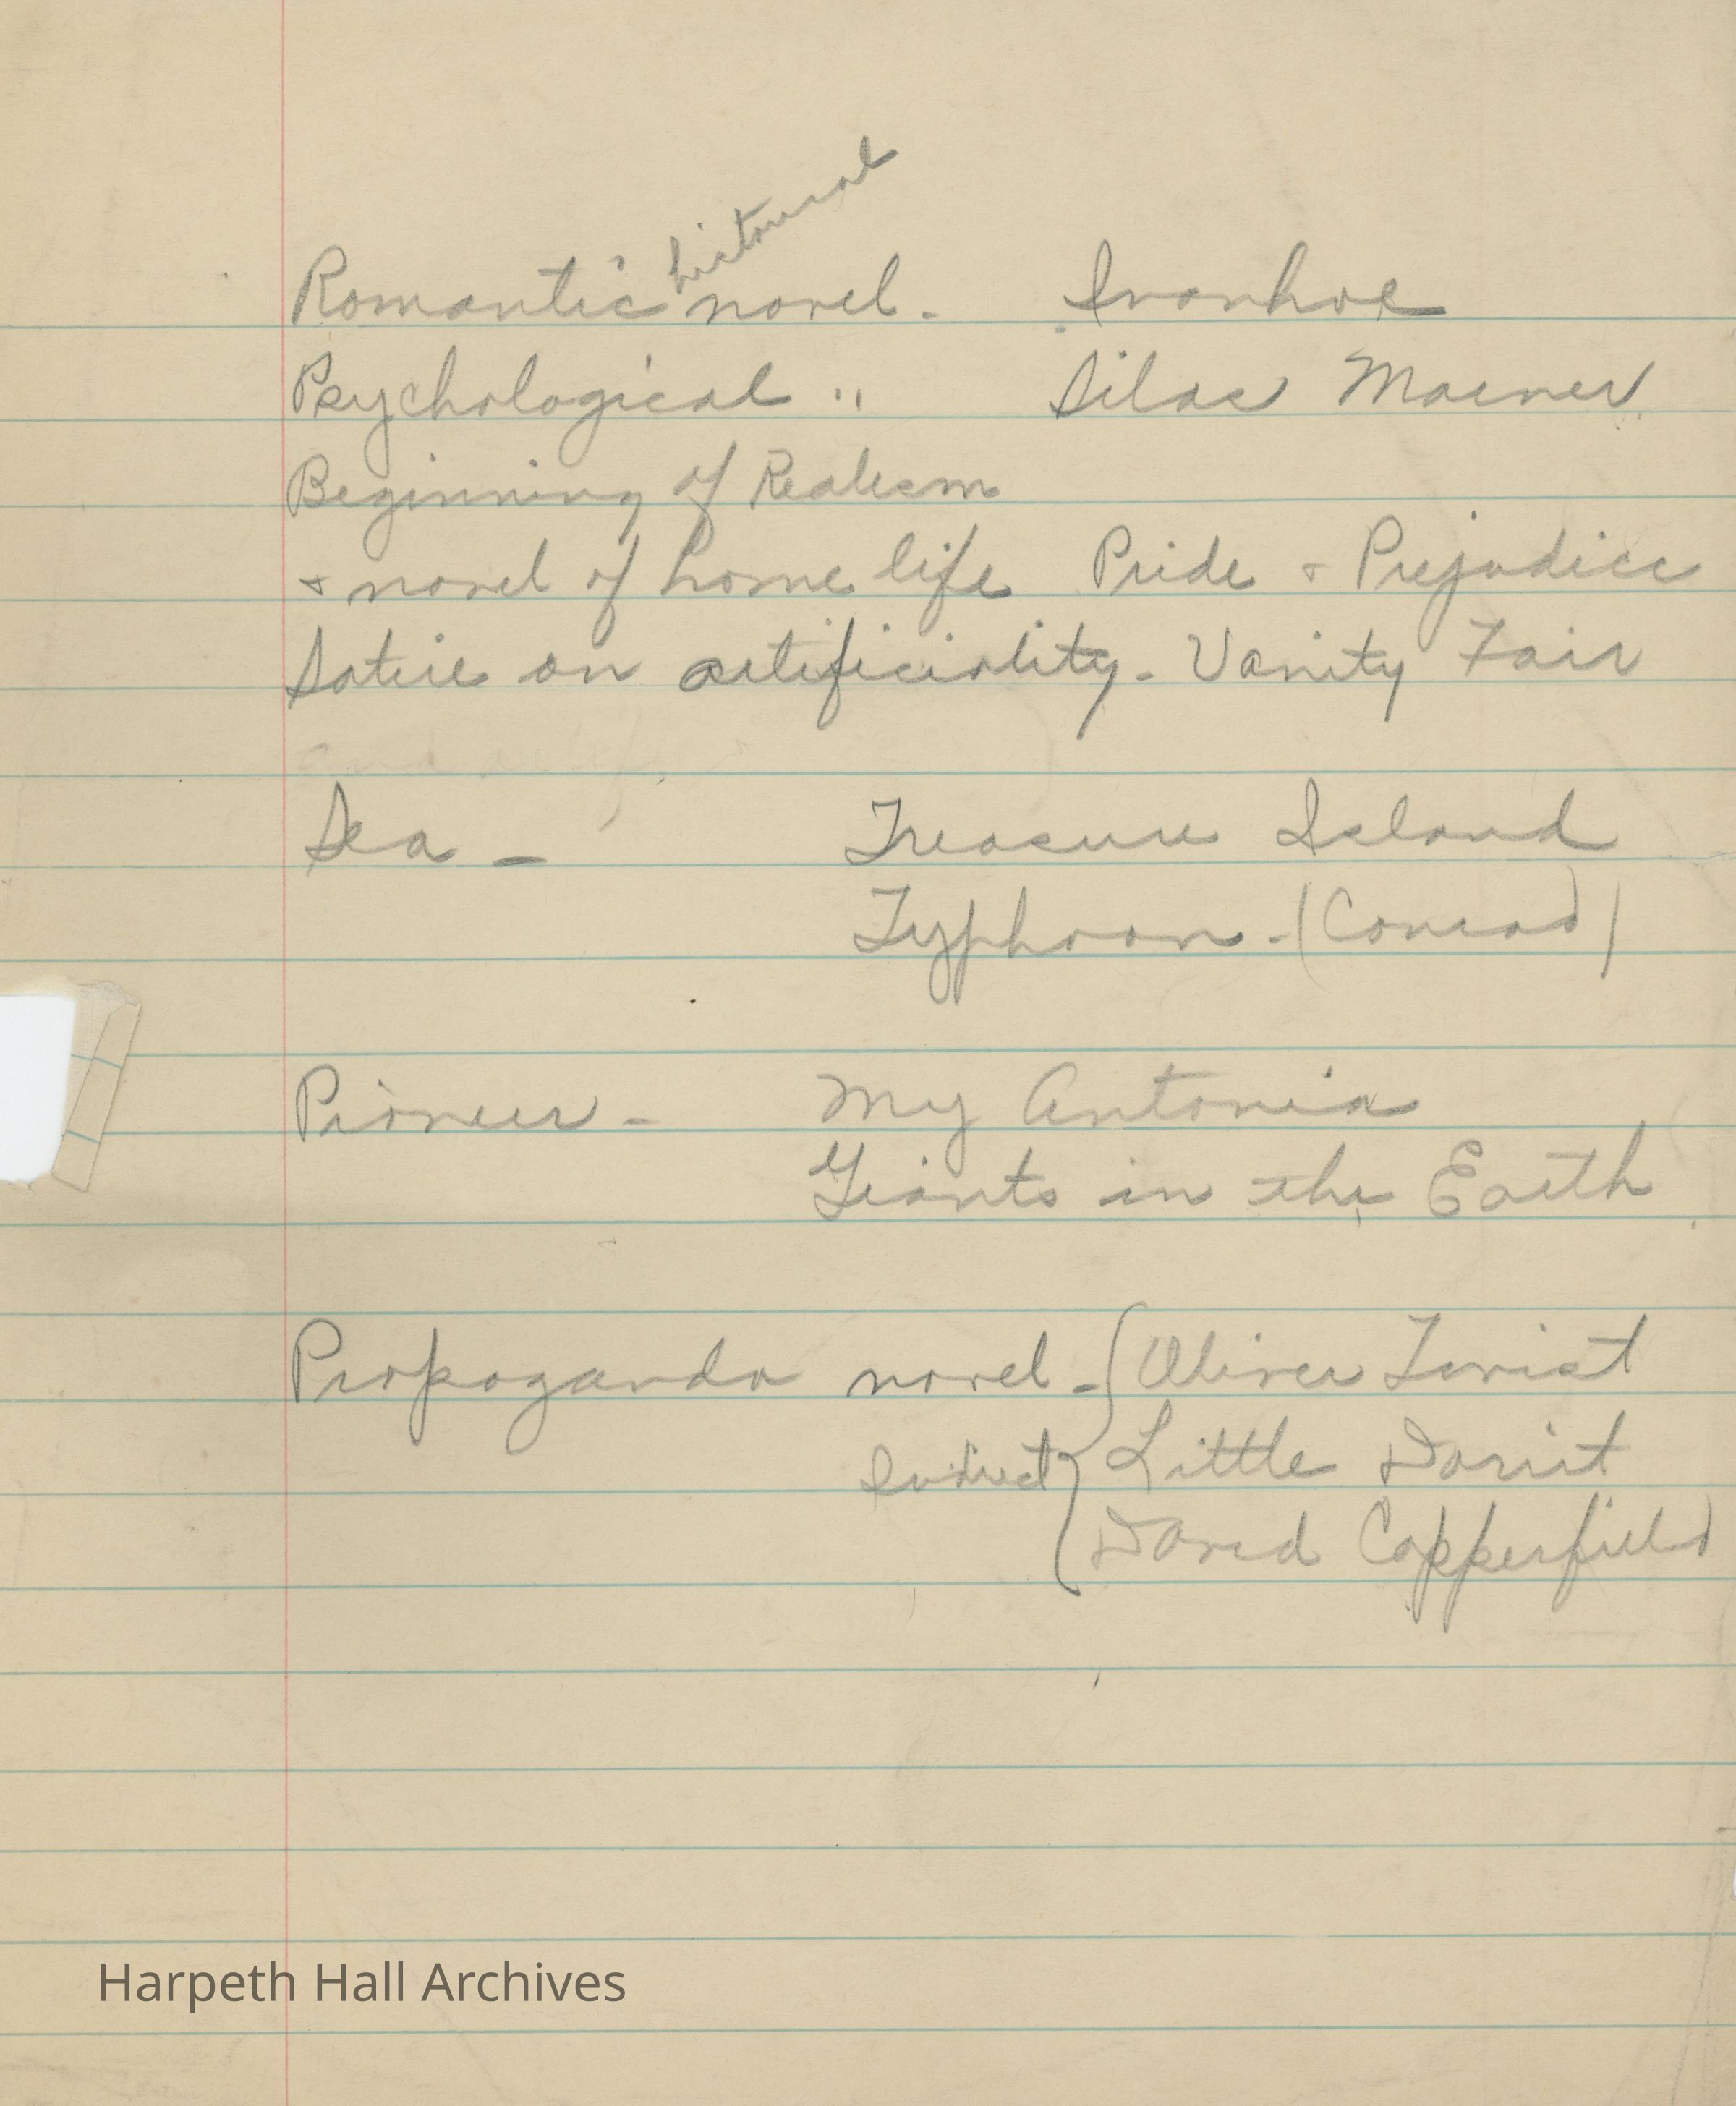 Romantic historical novel. Ivanhoe
Psychological " Silas Marner
Beginning of Realism
& novel of home life Pride & Prejudice
Satire on artificiality - Vanity Fair
Sea - Treasure Island
Typhoon - (Conrad)
Pioneer - My Antonia
Giants in the Earth
Propaganda novel - Oliver Twist
Indirect Little Dorrit
David Copperfield
Harpeth Hall Archives